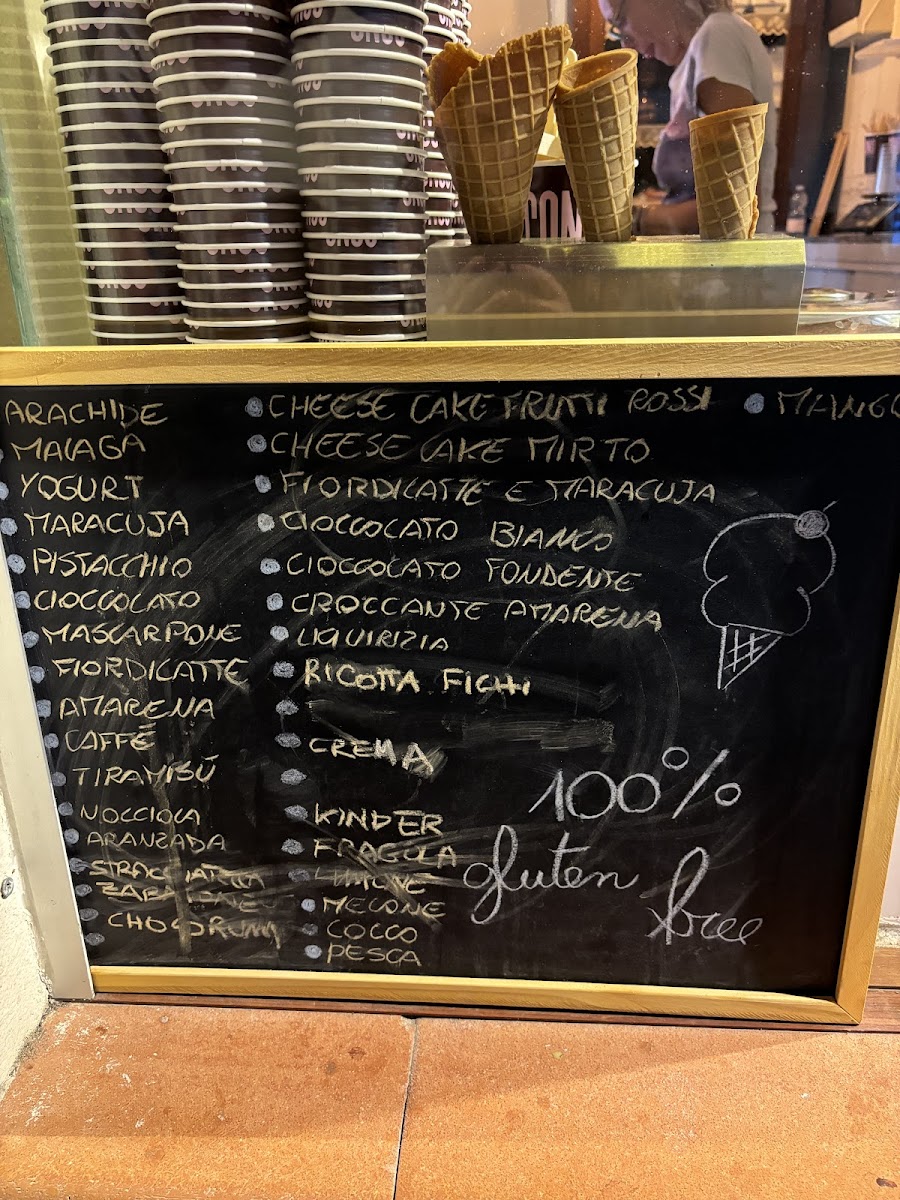 ARACHIDE
MALAGA
YOGURT
MARACUJA
PISTACCHIO
CIOCCOLATO
MASCARPONE
FIORDILATTE
AMARENA
CAFFÉ
TIRAMISÚ
NOCCIOLA
ARANZADA
STRACCIATELLA
CHOCORUM
CHEESE CAKE FRUTTI ROSSI
CHEESE CAKE MIRTO
FIORDILATTE E MARACUJA
CIOCCOLATO BIANCO
CIOCCOLATO FONDENTE
CROCCANTE AMARENA
LIQUIRIZIA
RICOTTA FICHI
CREMA
KINDER
FRAGOLA
LIMONE
MELONE
COCCO
PESCA
MANGO
100%
gluten
free